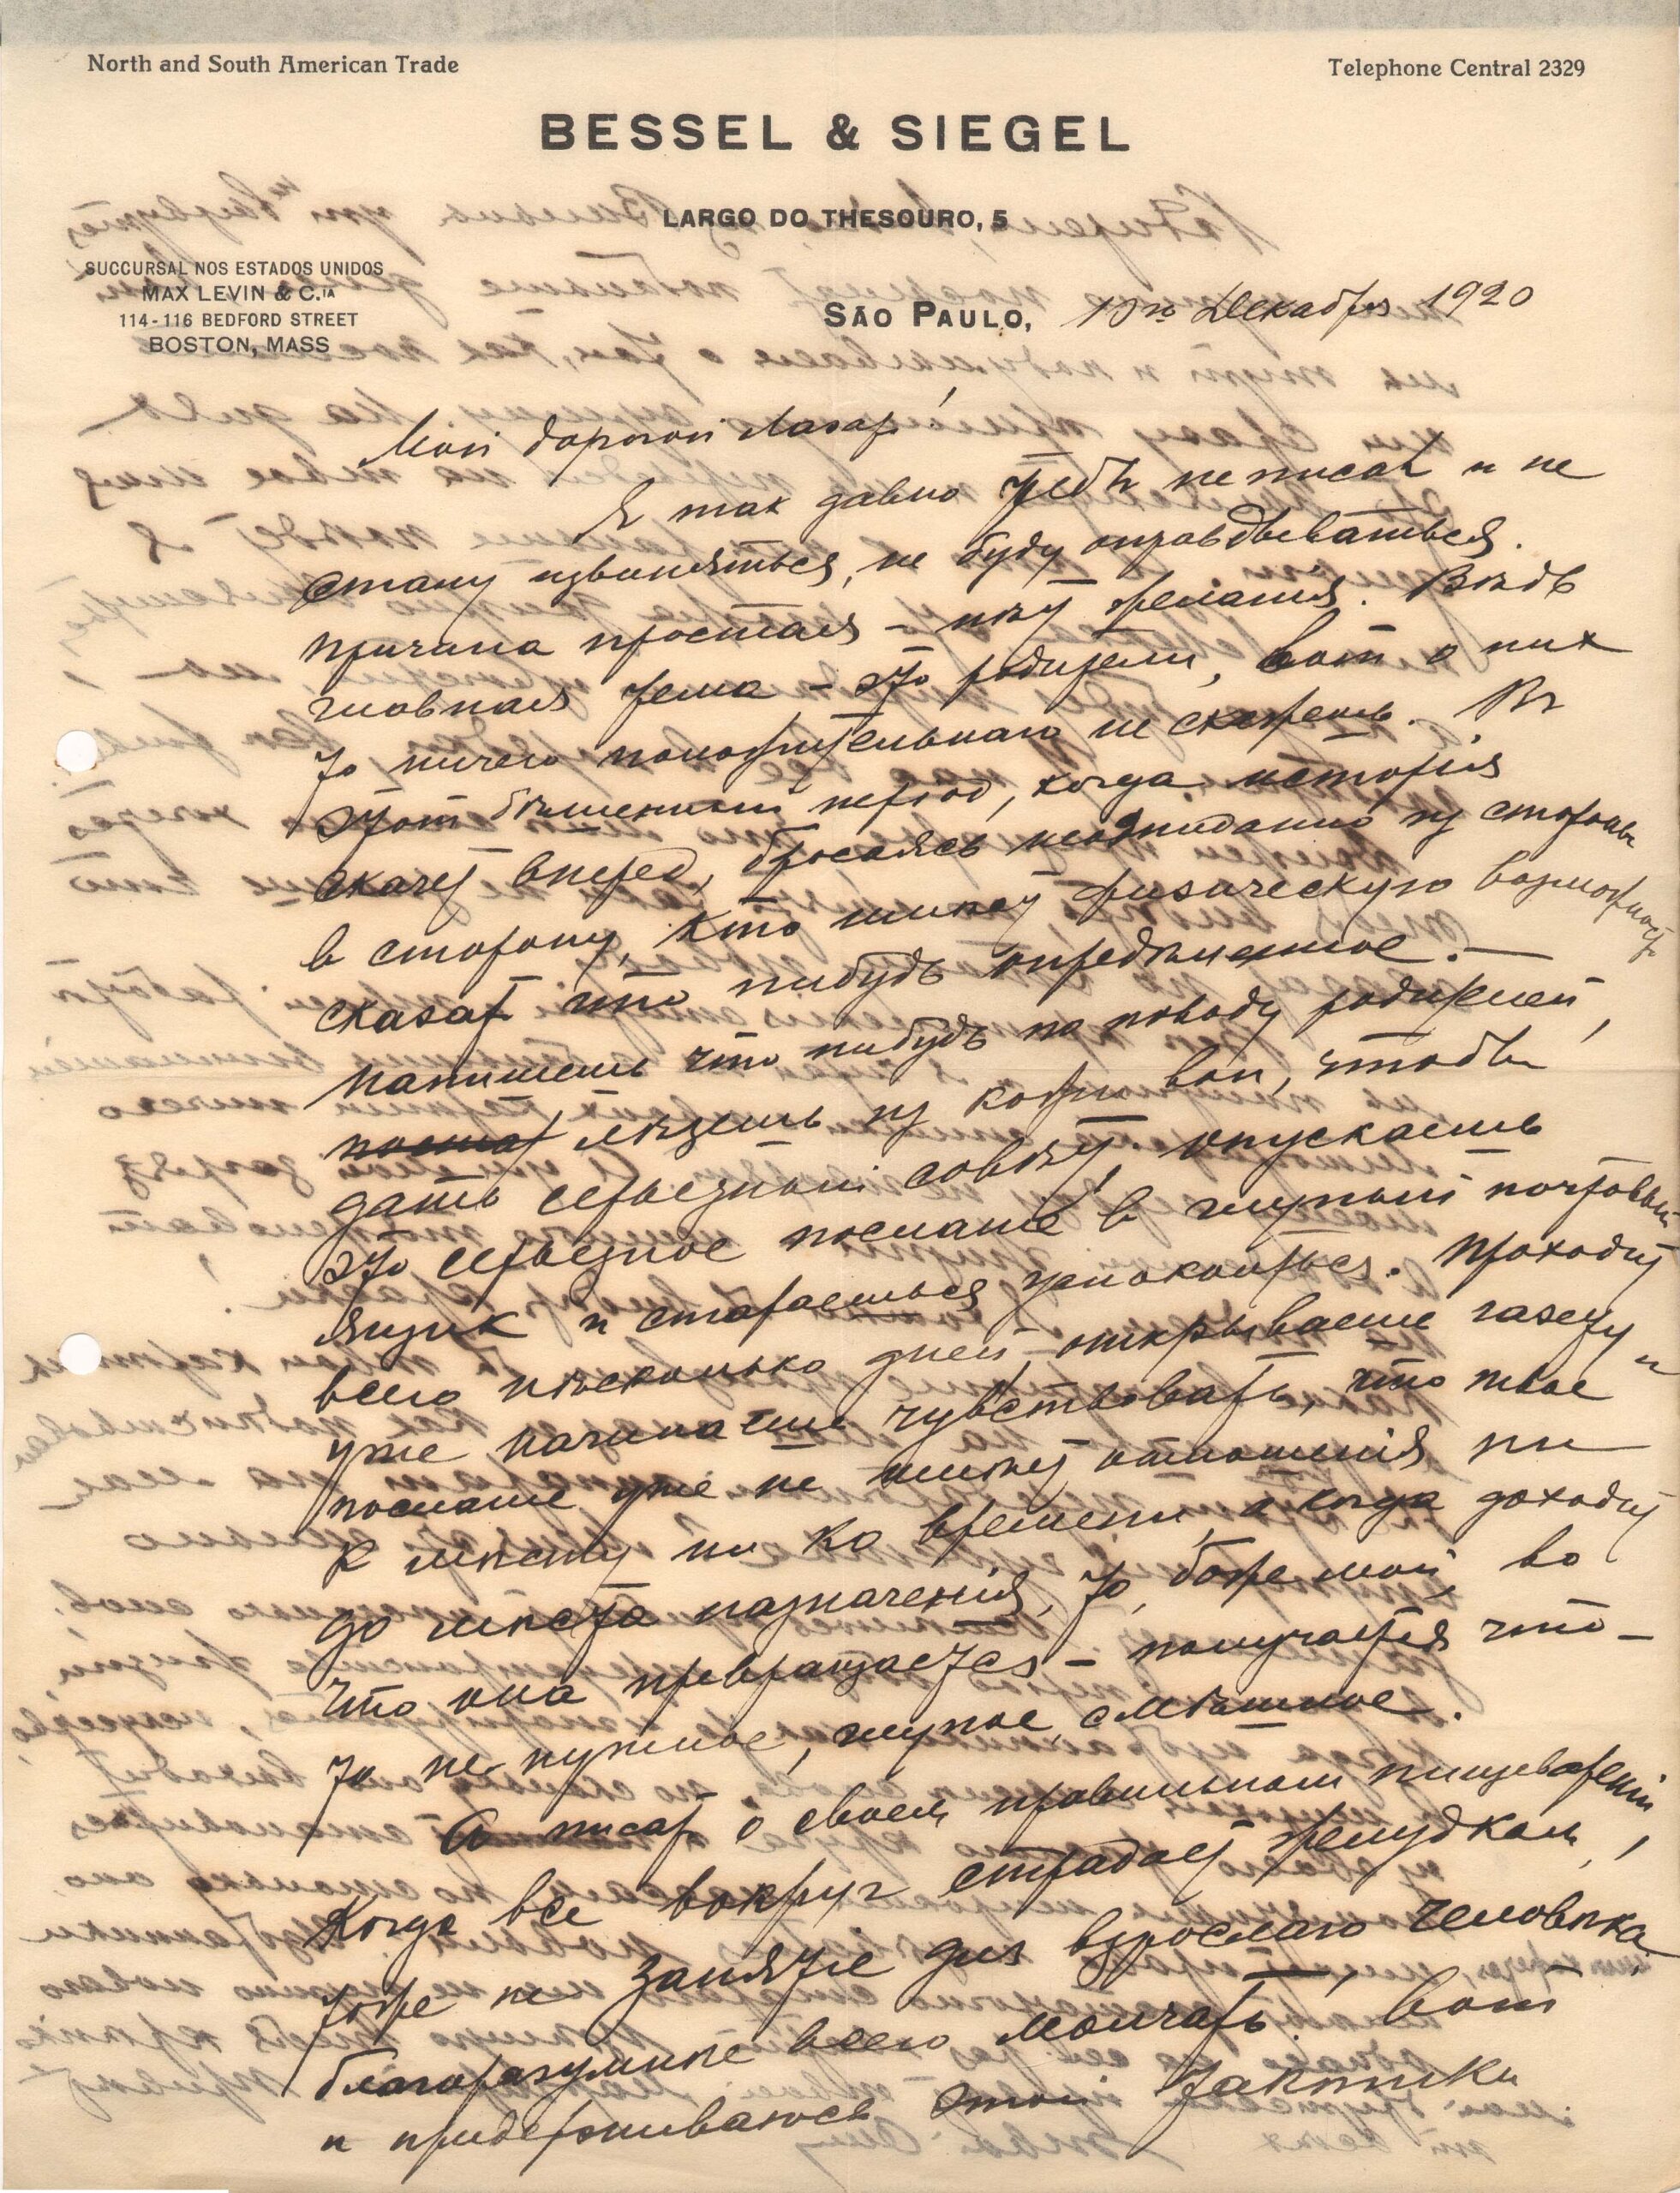 North and South American Trade
Telephone Central 2329
BESSEL & SIEGEL
LARGO DO THESOURO, 5
SUCCURSAL NOS ESTADOS UNIDOS
MAX LEVIN & C.IA
114-116 BEDFORD STREET
BOSTON, MASS
SÃO PAULO, Декабря 1920
Мой дорогой Лазарь!
Я так давно тебѣ не писал и не
стану извиняться, не буду оправдываться.
Причина простая – нѣт желанія. Вѣдь
главная тема – это родители, вот о них
то ничего положительнаго не скажешь. Въ
этот бѣшенный період, когда исторія
скачет вперед, бросаясь неожиданно из стороны
в сторону, кто имѣет физическую возможность
сказать что нибудь опредѣленное. —
Напишешь что нибудь по поводу родителей,
лѣзешь из кожи вон, чтобы
дать серьезный совѣт, опускаешь
это серьезное посланіе в глупый почтовый
ящик и стараешься успокоиться. Проходит
всего нѣсколько дней, открываешь газету и
уже начинаешь чувствовать, что твое
посланіе уже не имѣет отношенія ни
к мѣсту ни ко времени, а когда доходит
до мѣста назначенія, то, боже мой, во
что она превращается – получается что-
то не нужное, глупое, смѣшное.
А писать о своем правильном пищевареніи,
когда все вокруг страдает желудком,
тоже не занятіе для взрослаго человѣка,
благоразумнѣе всего молчать. Вот
и придерживаюсь этой тактики